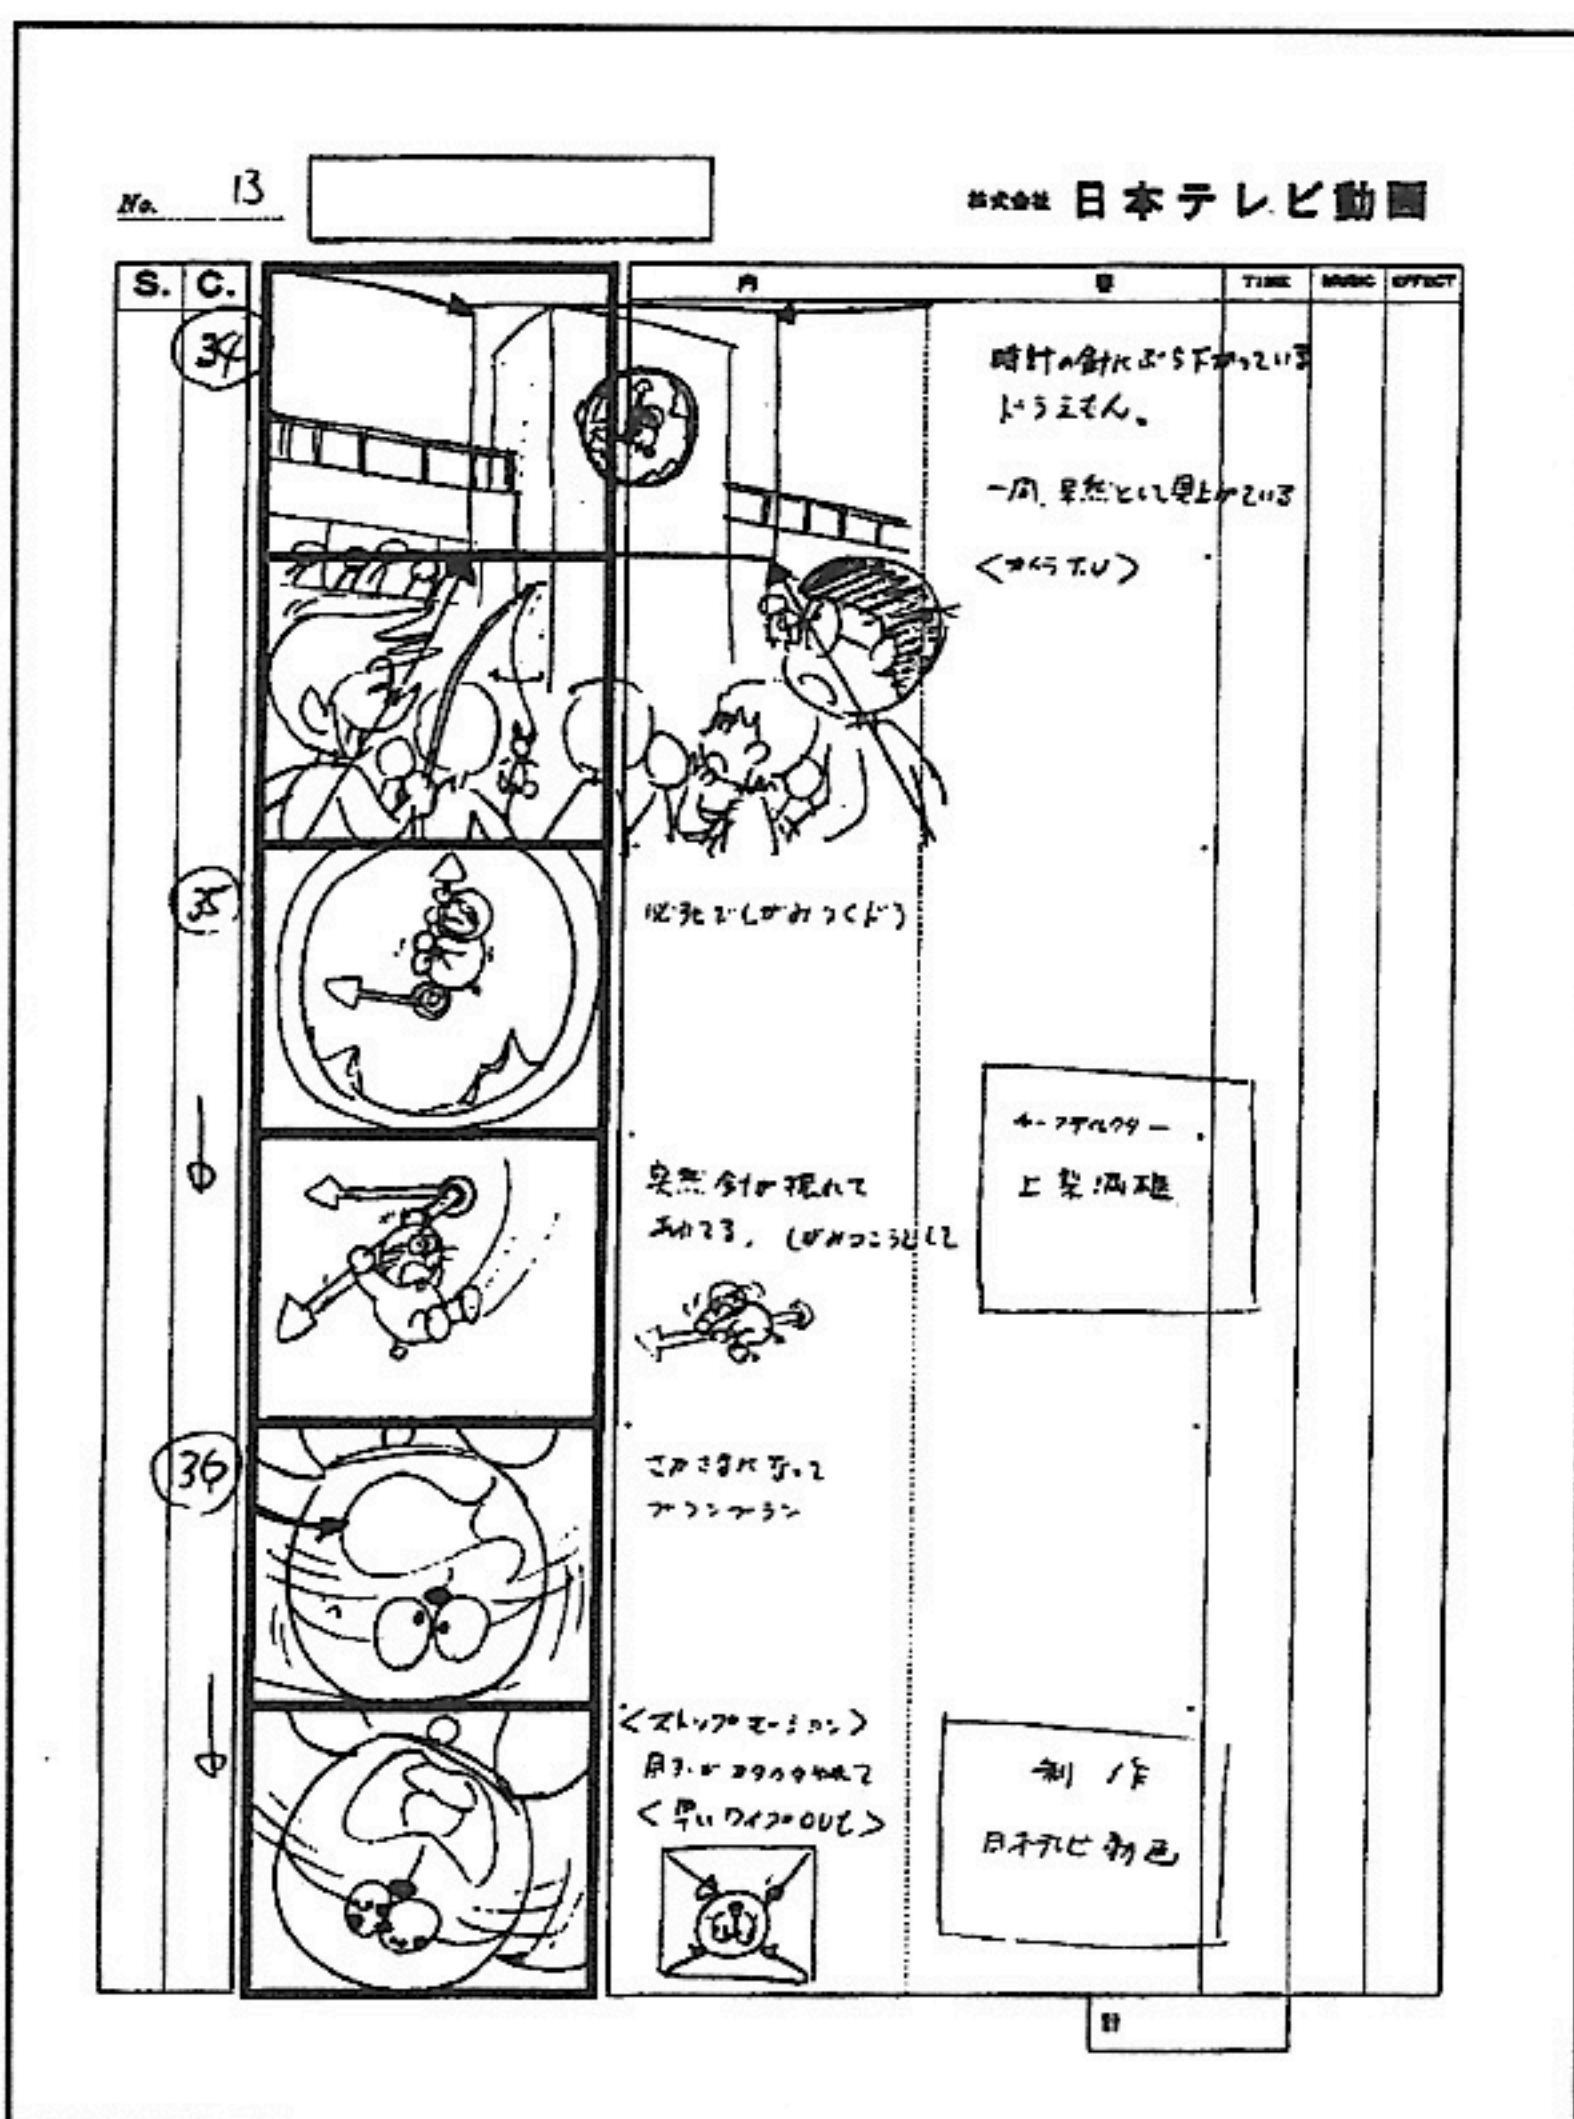 No. 13
株式会社 日本テレビ動画
S. C. 内 容 TIME MUSIC EFFECT
34
時計の針にぶら下がっている
ドラえもん。
一同、呆然として見上げている
<カメラT.U>
35
必死でしがみつくドラ
突然針が振れて
あわてる。しがみつこうとして
チーフディレクター
上梨満雄
36
さかさまになって
ブランブラン
<ストップモーション>
目玉がカタカタゆれて
<早いワイプOUT>
制作
日本テレビ動画
計